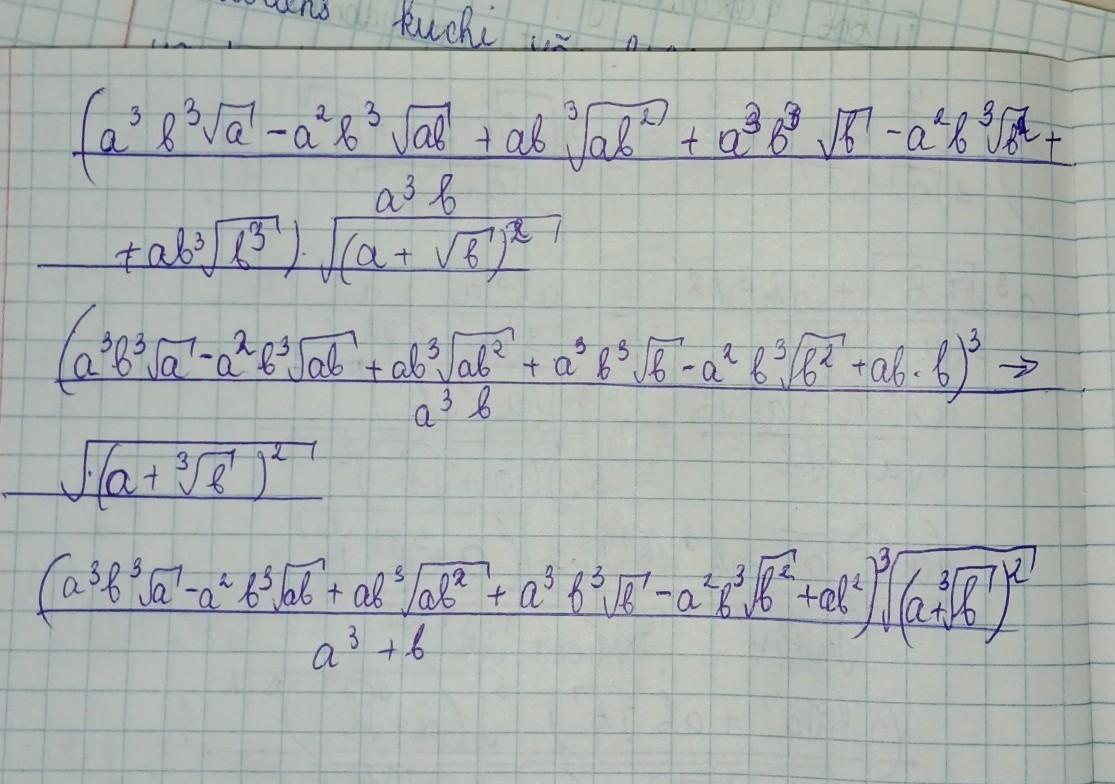 kuchi
(a³b³√a - a²b³√ab + ab ³√ab² + a³b³ √b - a²b³√b² +
a³b
+ ab³√b³) · √(a + √b)²
(a³b³√a - a²b³√ab + ab³√ab² + a³b³√b - a²b³√b² + ab · b)³ →
a³b
√·(a + ³√b)²
(a³b³√a - a²b³√ab + ab³√ab² + a³b³√b - a²b³√b² + ab²)³√(a+³√b)²
a³ + b